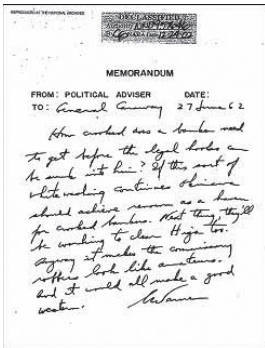 REPRODUCED AT THE NATIONAL ARCHIVES
DECLASSIFIED
MEMORANDUM
FROM: POLITICAL ADVISER DATE:
TO: General Caraway 27 June 62
How crooked does a banker need
to get before the legal hooks can
be sunk into him? If this sort of
whitewashing continues Okinawa
should achieve renown as a haven
for crooked bankers. Next thing, they'll
be working to clear Higa too.
Anyway it makes the commissary
robbers look like amateurs.
And it would all make a good
western.